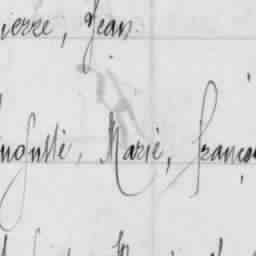 ierre, Jean
uguste, Marie, Franço